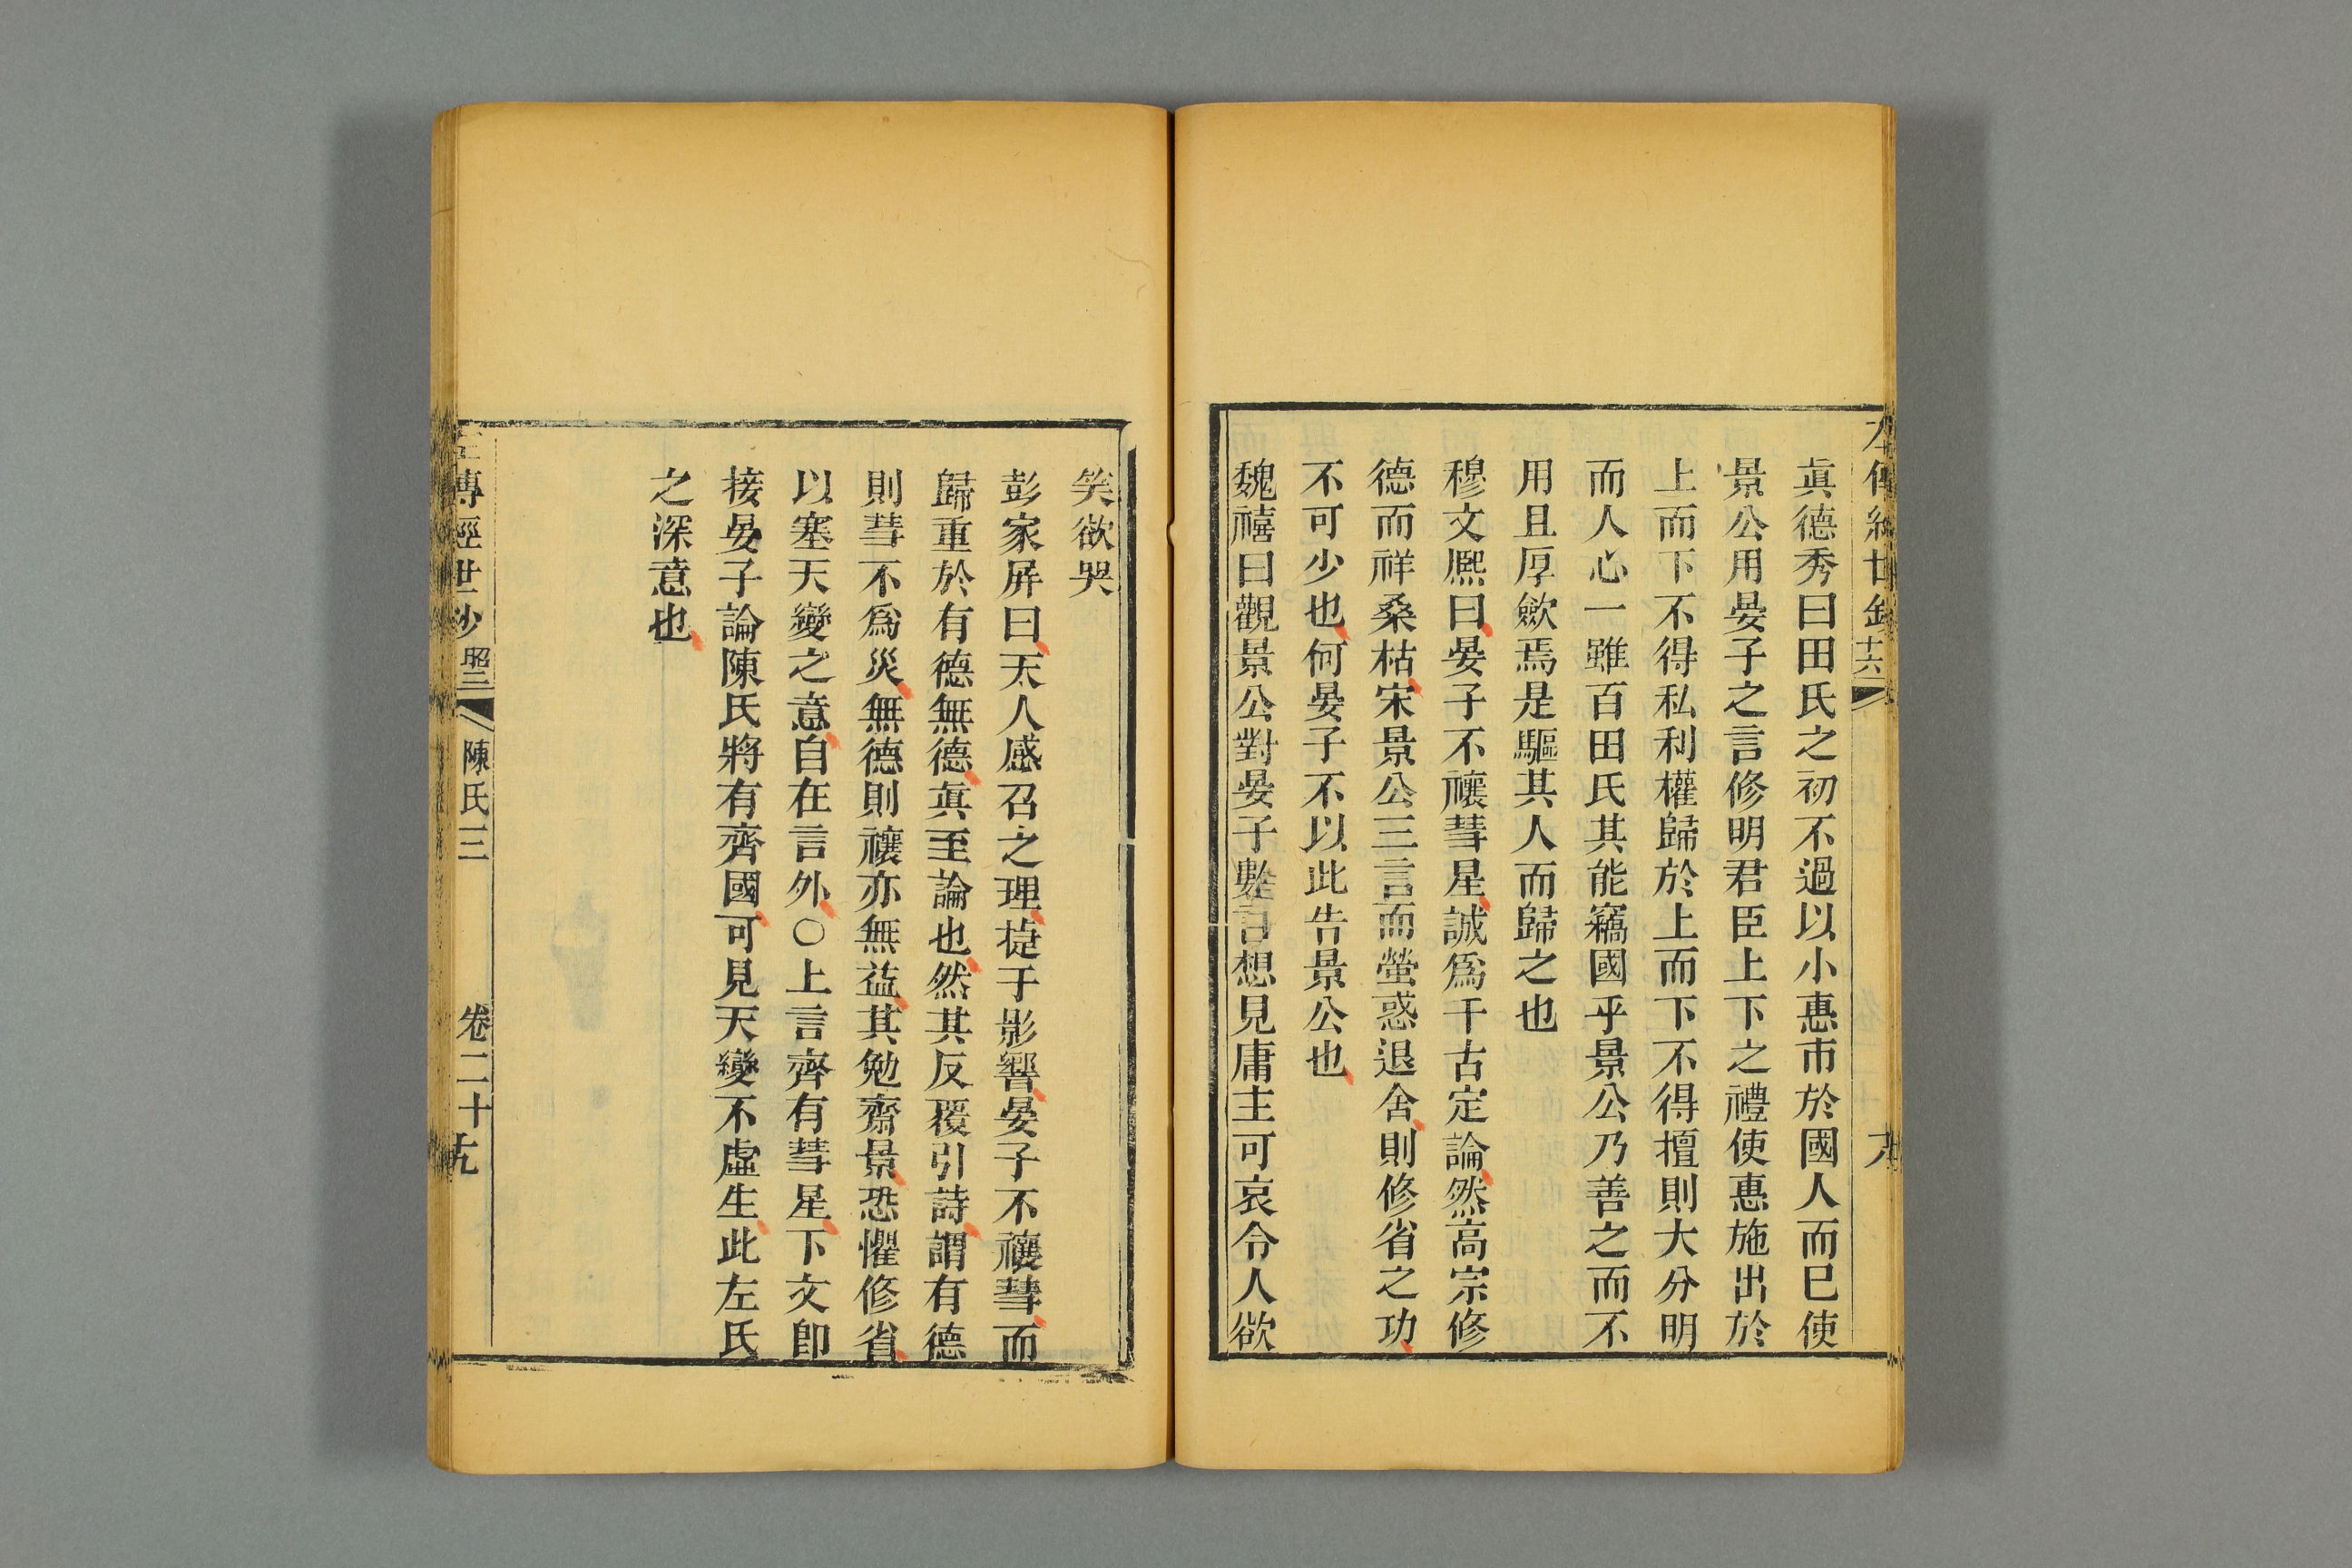 眞德秀曰田氏之初不過以小惠市於國人而巳使
景公用晏子之言修明君臣上下之禮使惠施出於
上而下不得私利權歸於上而下不得擅則大分明
而人心一雖百田氏其能竊國乎景公乃善之而不
用且厚歛焉是驅其人而歸之也
穆文熈曰晏子不禳彗星誠爲千古定論然高宗修
德而祥桑枯宋景公三言而螢惑退舍則修省之功
不可少也何晏子不以此告景公也
魏禧曰觀景公對晏子數言想見庸主可哀令人欲
笑欲哭
彭家屏曰天人感召之理捷于影響晏子不禳彗而
歸重於有德無德眞至論也然其反覆引詩謂有德
則彗不爲災無德則禳亦無益其勉齋景恐懼修省
以塞天變之意自在言外○上言齊有彗星下文卽
接晏子論陳氏將有齊國可見天變不虛生此左氏
之深意也
左傳經世鈔 昭二 陳氏三 卷二十 九